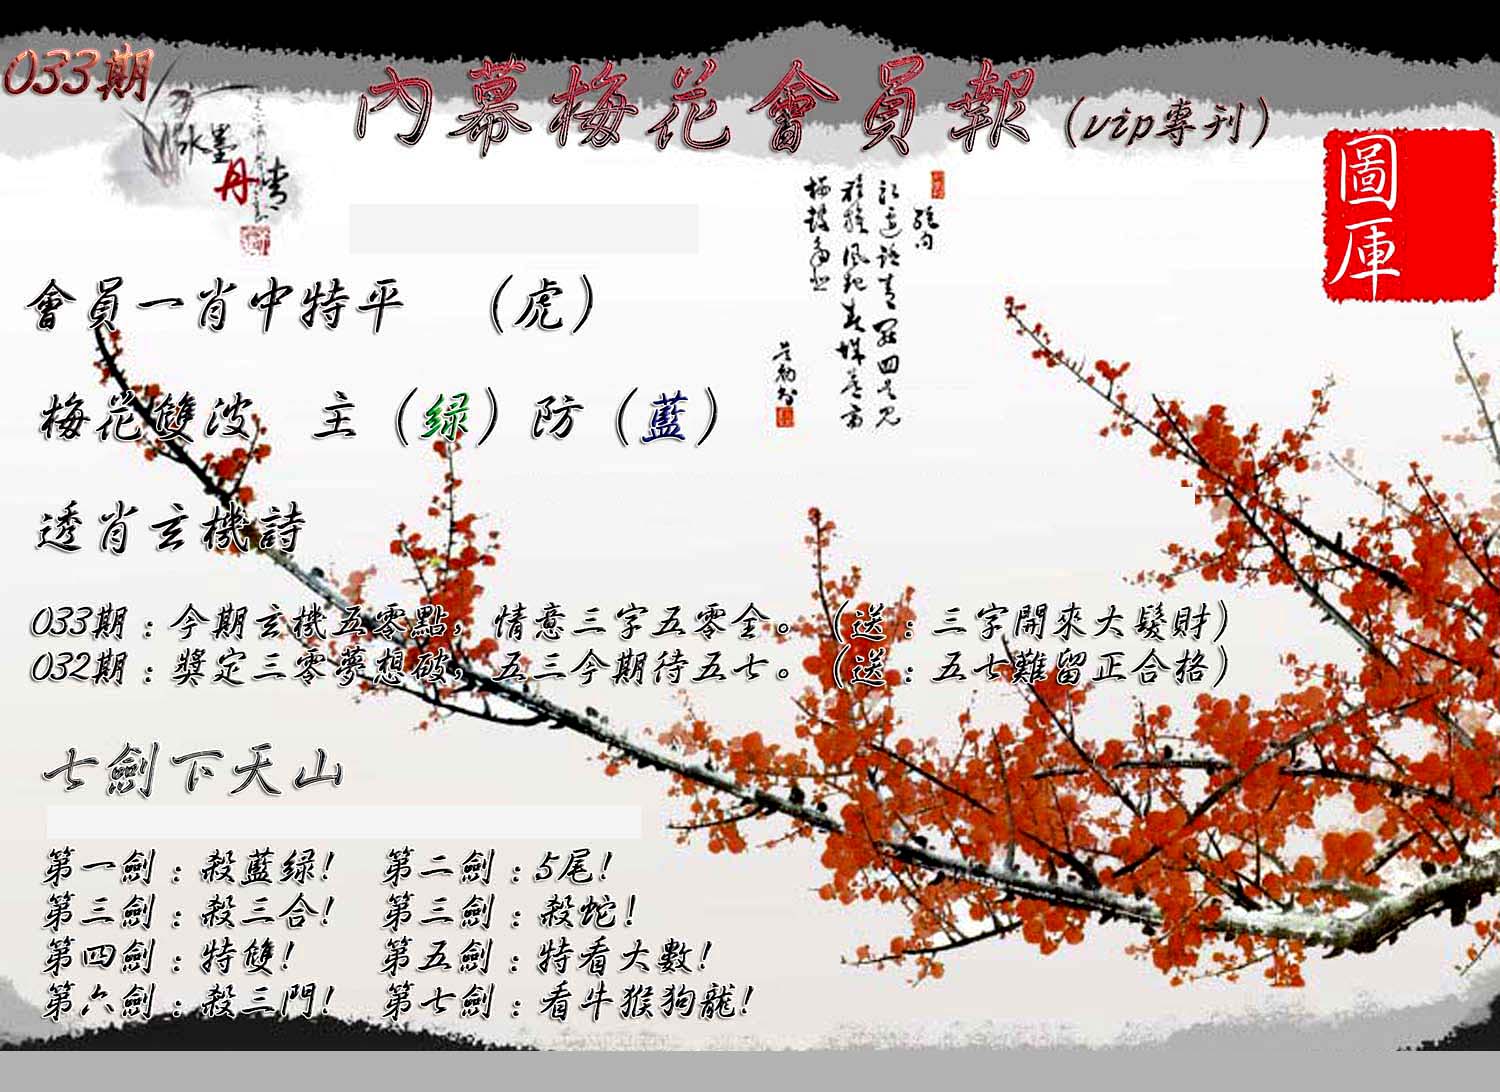 033期
內幕梅花會員報（vip專刊）
水墨
丹青
圖庫
會員一肖中特平 （虎）
梅花雙波 主（绿）防（藍）
透肖玄機詩
033期：今期玄機五零點，情意三字五零全。（送：三字開來大髮財）
032期：獎定三零夢想破，五三今期待五七。（送：五七難留正合格）
七劍下天山
第一劍：殺藍绿！ 第二劍：5尾！
第三劍：殺三合！ 第三劍：殺蛇！
第四劍：特雙！ 第五劍：特看大數！
第六劍：殺三門！ 第七劍：看牛猴狗龍！